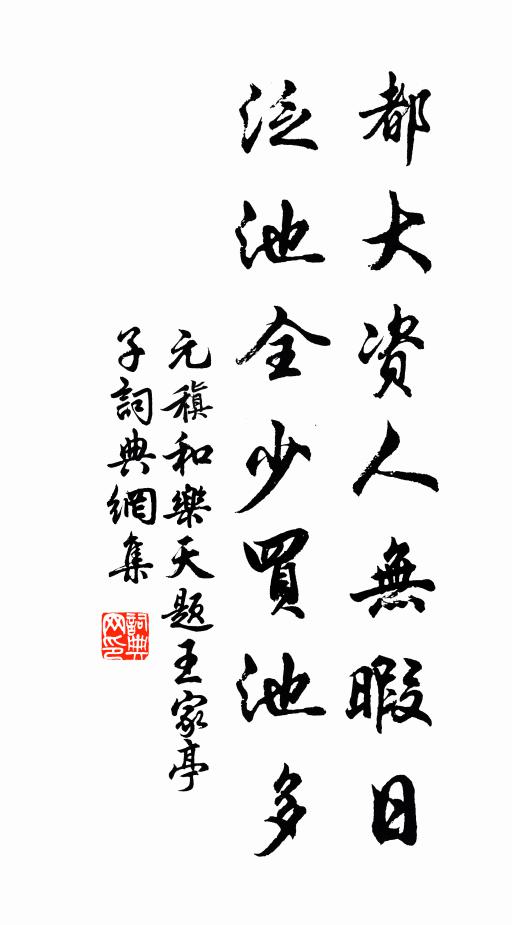 都大资人無暇日
泛池全少買池多
元稹和樂天題王家亭
子詞典網集
詞典
网印